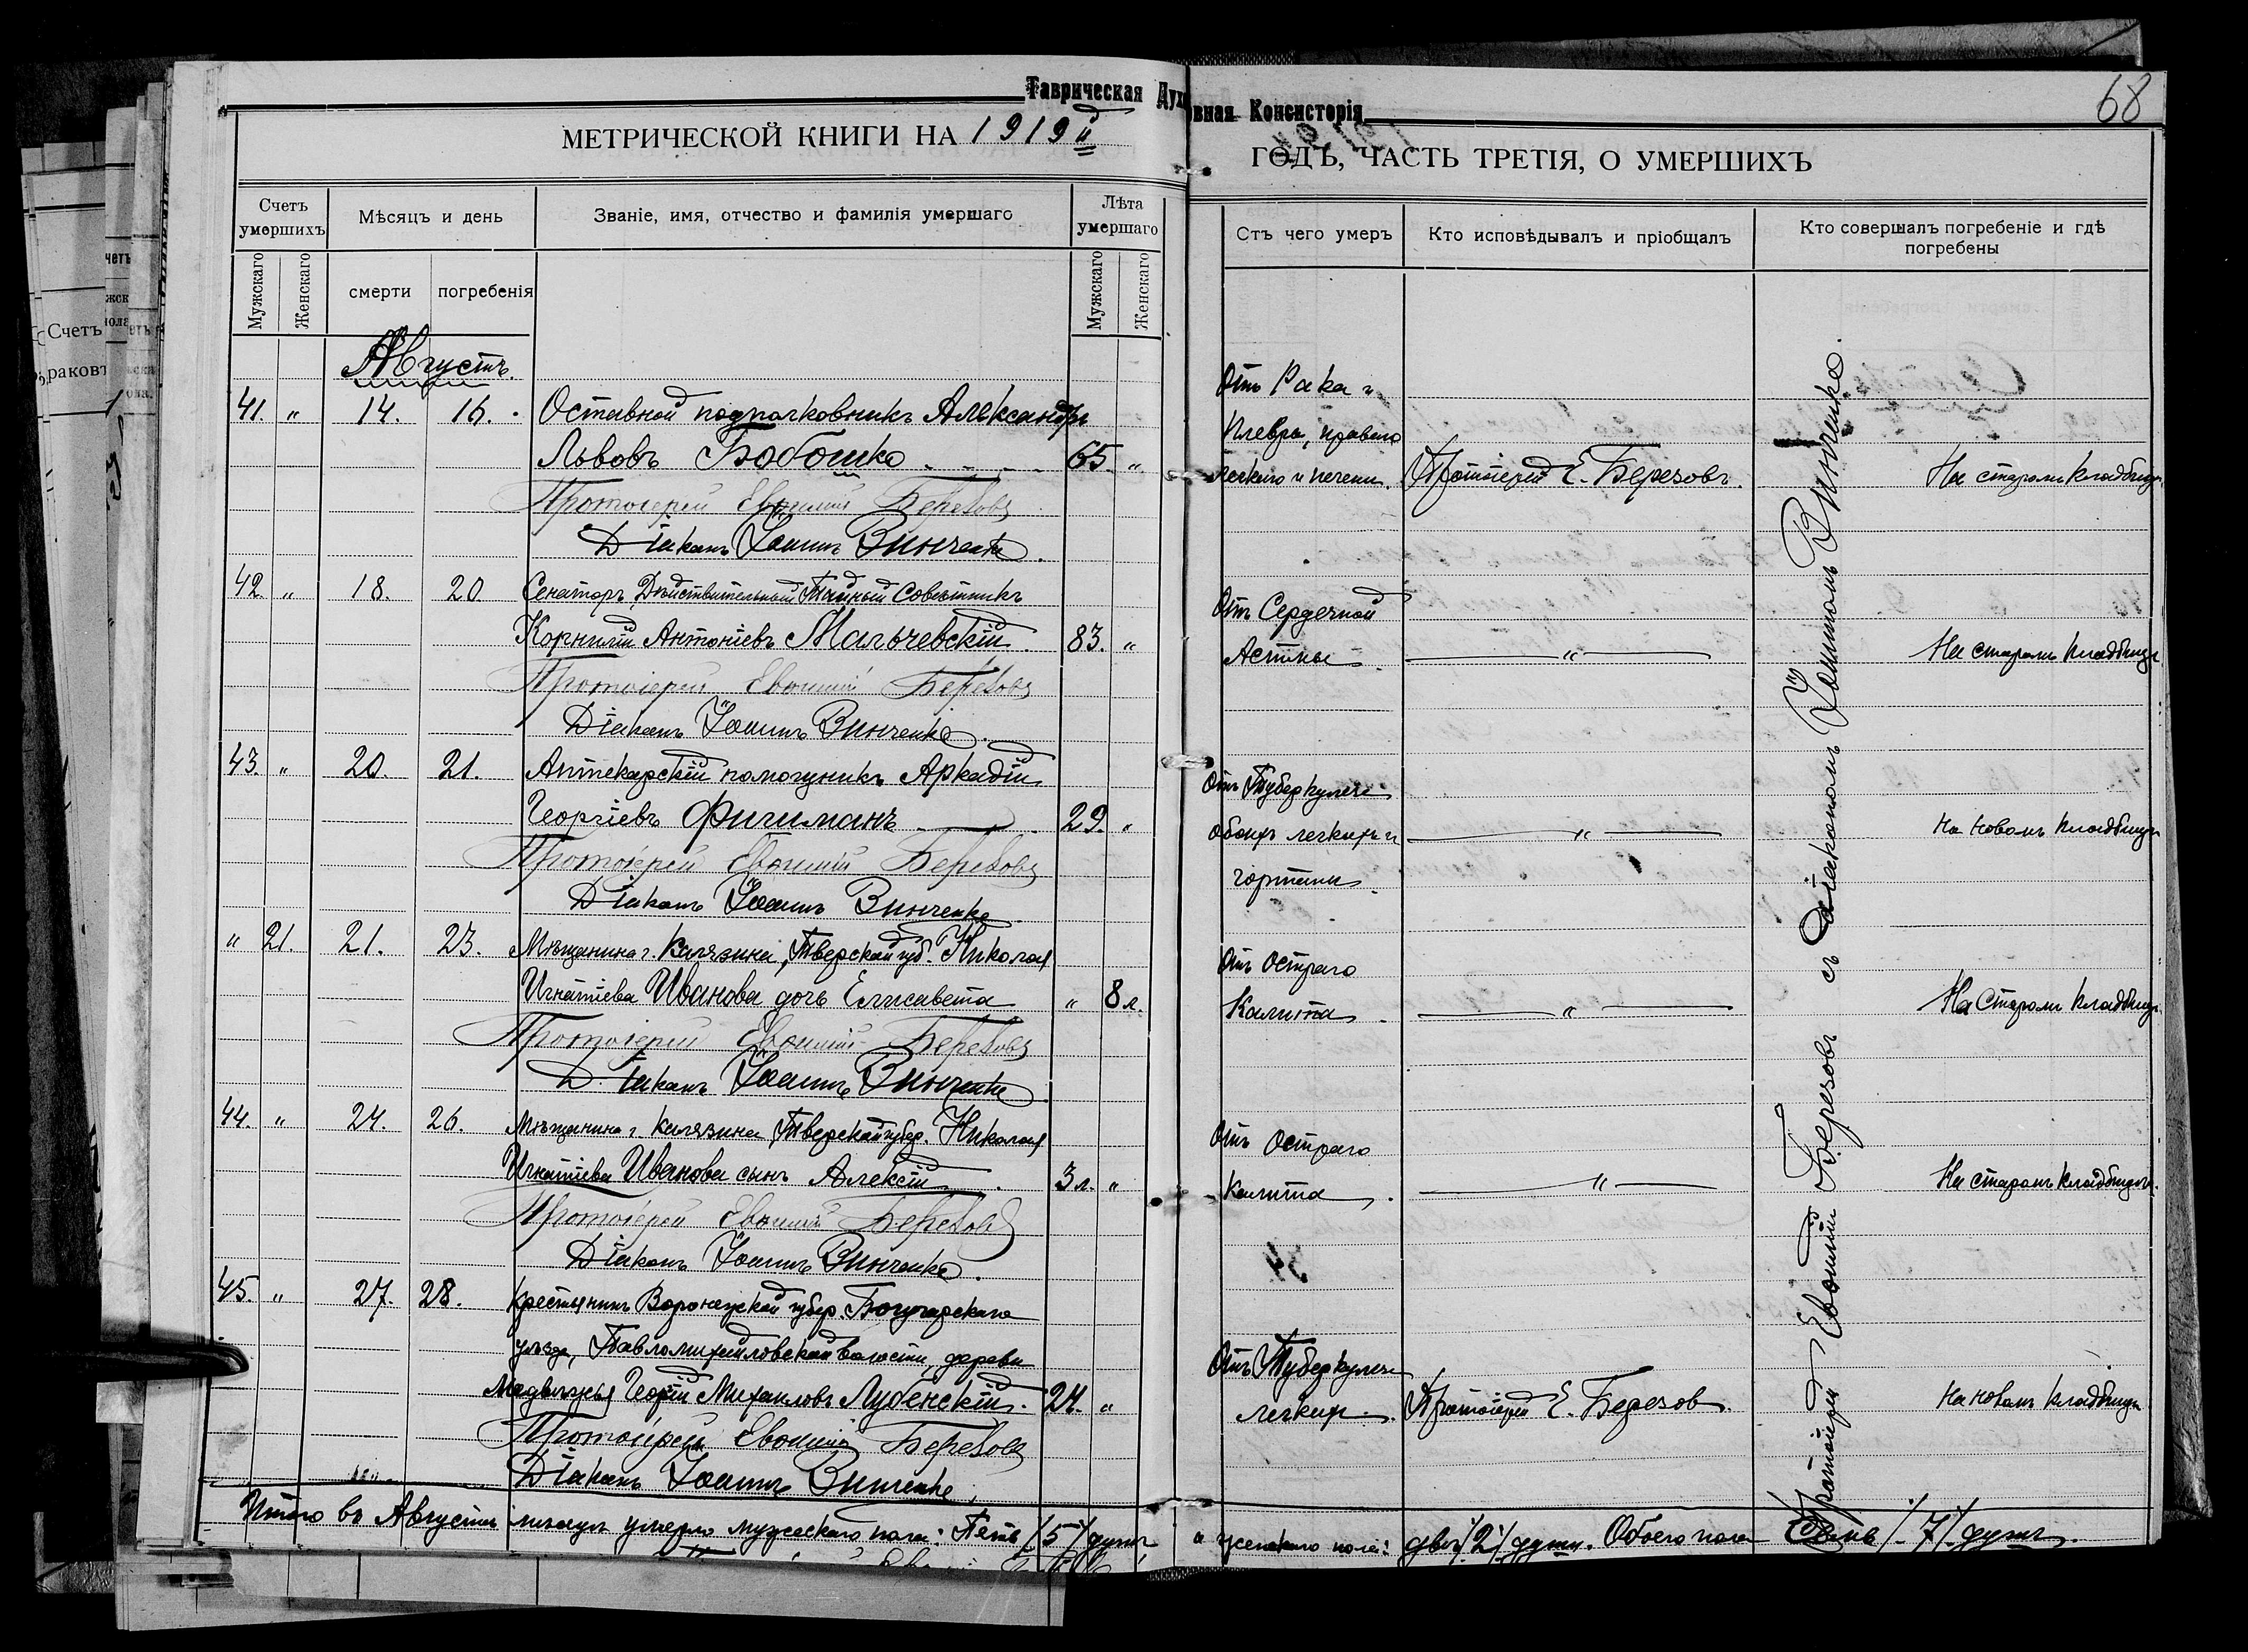 Таврическая Духовная Консисторія
68
МЕТРИЧЕСКОЙ КНИГИ НА 1919й ГОДЪ, ЧАСТЬ ТРЕТІЯ, О УМЕРШИХЪ
Счетъ умершихъ
Мѣсяцъ и день
Званіе, имя, отчество и фамилія умершаго
Лѣта умершаго
Мужскаго
Женскаго
смерти
погребенія
Мужскаго
Женскаго
Отъ чего умеръ
Кто исповѣдывалъ и пріобщалъ
Кто совершалъ погребеніе и гдѣ погребены
Августъ.
41. " 14. 16. Оставной подполковникъ Александръ
Львовъ Бобошко 65. "
Протоіерей Евѳимій Березовъ
Діаконъ Іоаннъ Винченко.
Отъ Рака и
плевры, праваго
легкаго и печени.
Протоіерей Е. Березовъ.
На старомъ кладбищѣ.
42. " 18. 20. Сенаторъ, Дѣйствительный Тайный Совѣтникъ
Корнилій Антоніевъ Мальчевскій. 83. "
Протоіерей Евѳимій Березовъ
Діаконъ Іоаннъ Винченко.
Отъ Сердечной
Астмы.
"
На старомъ кладбищѣ
43. " 20. 21. Аптекарскій помощникъ Аркадій
Георгіевъ Фигиманъ 29. "
Протоіерей Евѳимій Березовъ
Діаконъ Іоаннъ Винченко
Отъ Туберкулеза
обоихъ легкихъ и
гортани.
"
На новомъ кладбищѣ
" 21. 21. 23. Мѣщанина г. Калязина, Тверской губ. Николая
Игнатіева Иванова дочь Елисавета " 8 л.
Протоіерей Евѳимій Березовъ
Діаконъ Іоаннъ Винченко
Отъ остраго
Калита.
"
На Старомъ кладбищѣ
44. " 24. 26. Мѣщанина г. Калязина, Тверской губер. Николая
Игнатіева Иванова сынъ Алексій. 3 л. "
Протоіерей Евѳимій Березовъ
Діаконъ Іоаннъ Винченко.
Отъ остраго
Калита.
"
На старомъ кладбищѣ.
45. " 27. 28. Крестянинъ Воронежской губер. Богучарскаго
уѣзда, Павломихайловской волости, деревни
Медвѣжья Георгій Михаиловъ Лубенскій. 24. "
Протоіерей Евѳимій Березовъ
Діаконъ Іоаннъ Винченко.
Отъ Туберкулеза
легкихъ.
Протоіерей Е. Березов.
На новомъ кладбищѣ
Протоіерей Евѳимій Березовъ съ діакономъ Іоанномъ Винченко.
Итого въ Августѣ мѣсяцѣ умерло мужескаго пола: Пять /5/ душъ а женскаго пола: двѣ /2/ души. Обоего пола Семь /7/ душъ.